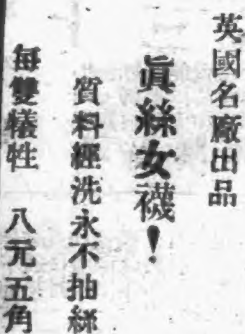 英國名廠出品
眞絲女襪！
質料經洗永不抽絲
每雙犧牲　八元五角